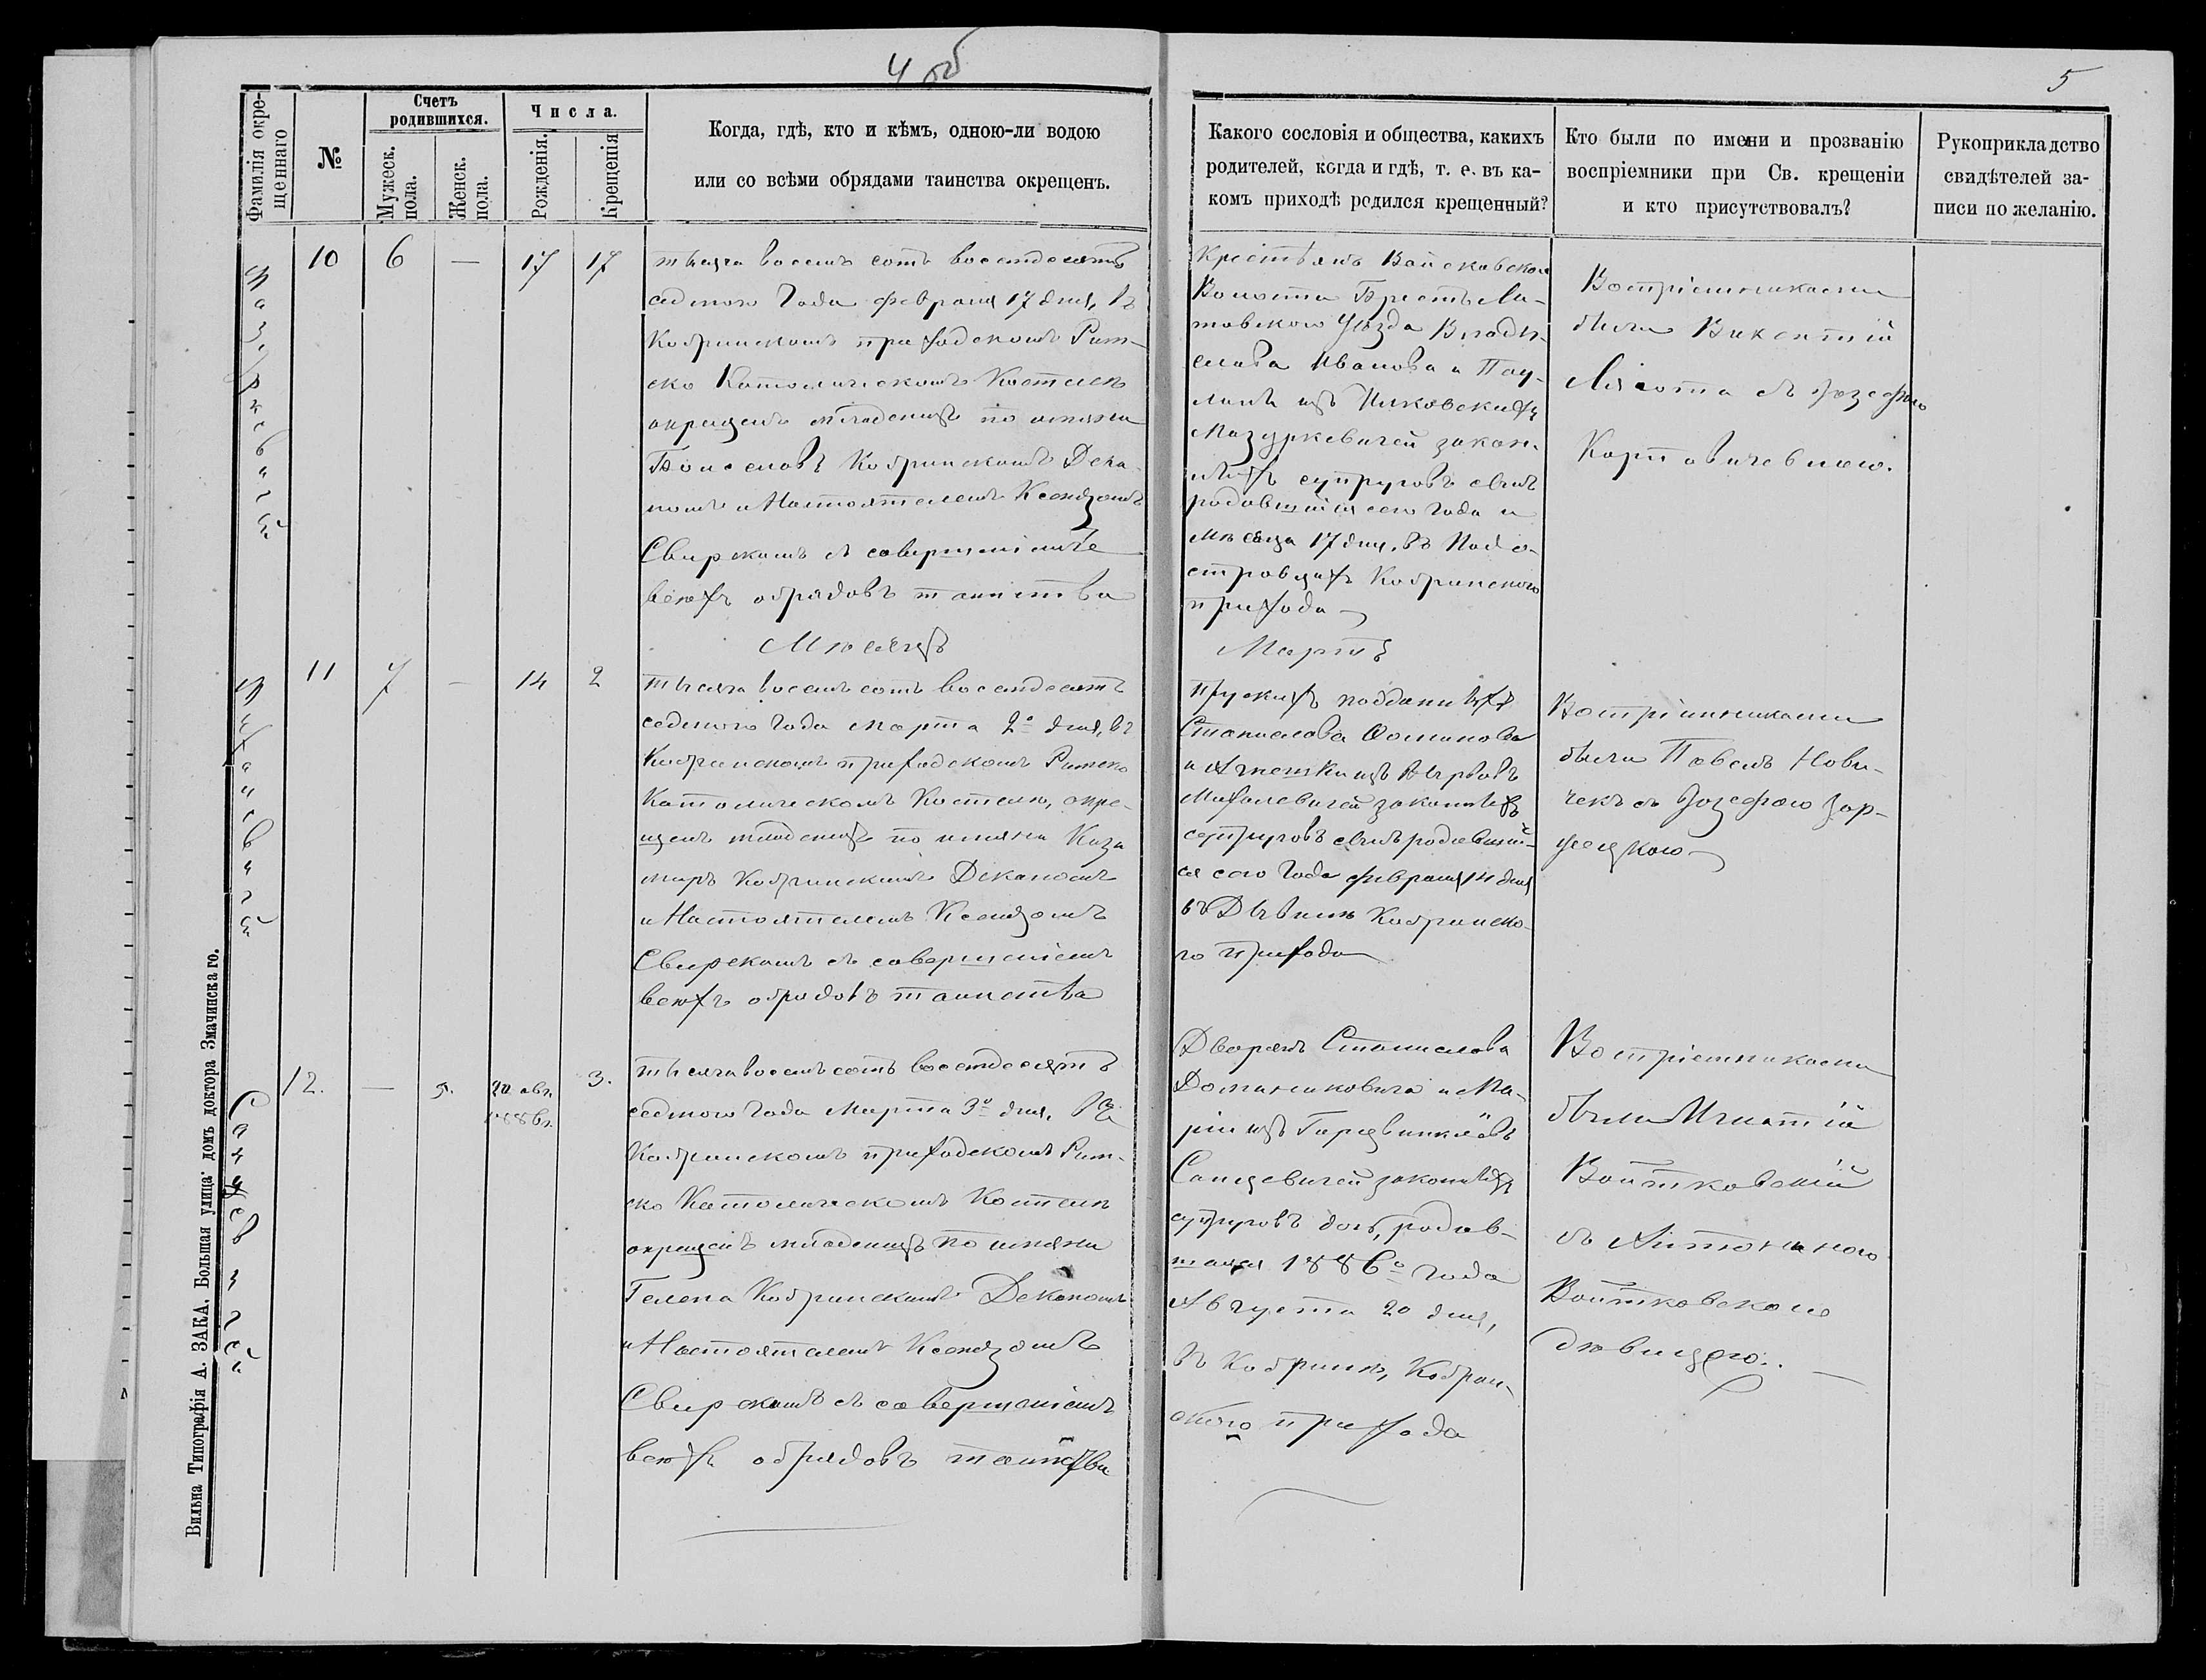 4 об
5
Фамилія окре-
щеннаго
№
Счетъ
родившихся.
Мужеск.
пола.
Женск.
пола.
Числа.
Рожденія.
Крещенія
Когда, гдѣ, кто и кѣмъ, одною-ли водою
или со всѣми обрядами таинства окрещенъ.
Какого сословія и общества, какихъ
родителей, когда и гдѣ, т. е. въ ка-
комъ приходѣ родился крещенный?
Кто были по имени и прозванію
воспріемники при Св. крещеніи
и кто присутствовалъ?
Рукоприкладство
свидѣтелей за-
писи по желанію.
10
6
—
17
17
тысяча восемь сотъ восемдесятъ
седмого Года февраля 17 дня, въ
Кобринскомъ приходскомъ Рим-
ско Католическомъ Костелѣ
окрещенъ младенецъ по имяни
Болеславъ Кобринскимъ Дека-
номъ и Настоятелемъ Ксендзомъ
Свирскимъ съ совершеніемъ
всѣхъ обрядовъ таинства
Крестьянъ
Волости Брестъ Ли-
товского Уѣзда Влади-
слава Иванова и Пау-
лины изъ
Мазуркевичей закон-
ныхъ супруговъ сынъ
родившійся сего Года и
мѣсяца 17 дня, въ
Кобринского
прихода
Воспріемниками
были Викентій
съ Юзефою
Мѣсяцъ
Мартъ
11
7
—
14
2
тысяча восемь сотъ восемдесятъ
седмого Года Марта 2º дня, въ
Кобринскомъ приходскомъ Римско
Католическомъ Костелѣ, окре-
щенъ младенецъ по имяни Кази
миръ Кобринскимъ Деканомъ
и Настоятелемъ Ксендзомъ
Свирскимъ съ совершеніемъ
всѣхъ обрядовъ таинства
Прускихъ подданныхъ
Станислава
и Агнешки изъ
Михалевичей законныхъ
супруговъ сынъ родившій-
ся сего Года февраля 14 дня
въ Дывинѣ Кобринско-
го прихода
Воспріемниками
были Павелъ Нови-
чекъ съ Юзефою
12.
—
5.
20 авг.
1886 г.
3.
тысяча восемь сотъ восемдесятъ
седмого Года Марта 3º дня, въ
Кобринскомъ приходскомъ Рим-
ско Католическомъ Костелѣ
окрещенъ младенецъ по имяни
Гелена Кобринскимъ Деканомъ
и Настоятелемъ Ксендзомъ
Свирскимъ съ совершеніемъ
всѣхъ обрядовъ таинства
Дворянъ Станислава
Доминиковича и Ма-
ріи изъ
Санцевичей законныхъ
супруговъ дочь, родив-
шаяся 1886º года
Августа 20 дня,
въ Кобринѣ, Кобрин-
ского прихода
Воспріемниками
были Игнатій
Войтковскій
съ Антониною
Войтковскою
дѣвицею.
Вильна Типографія А. ЗАКА, Большая улица домъ доктора Змачинскаго.